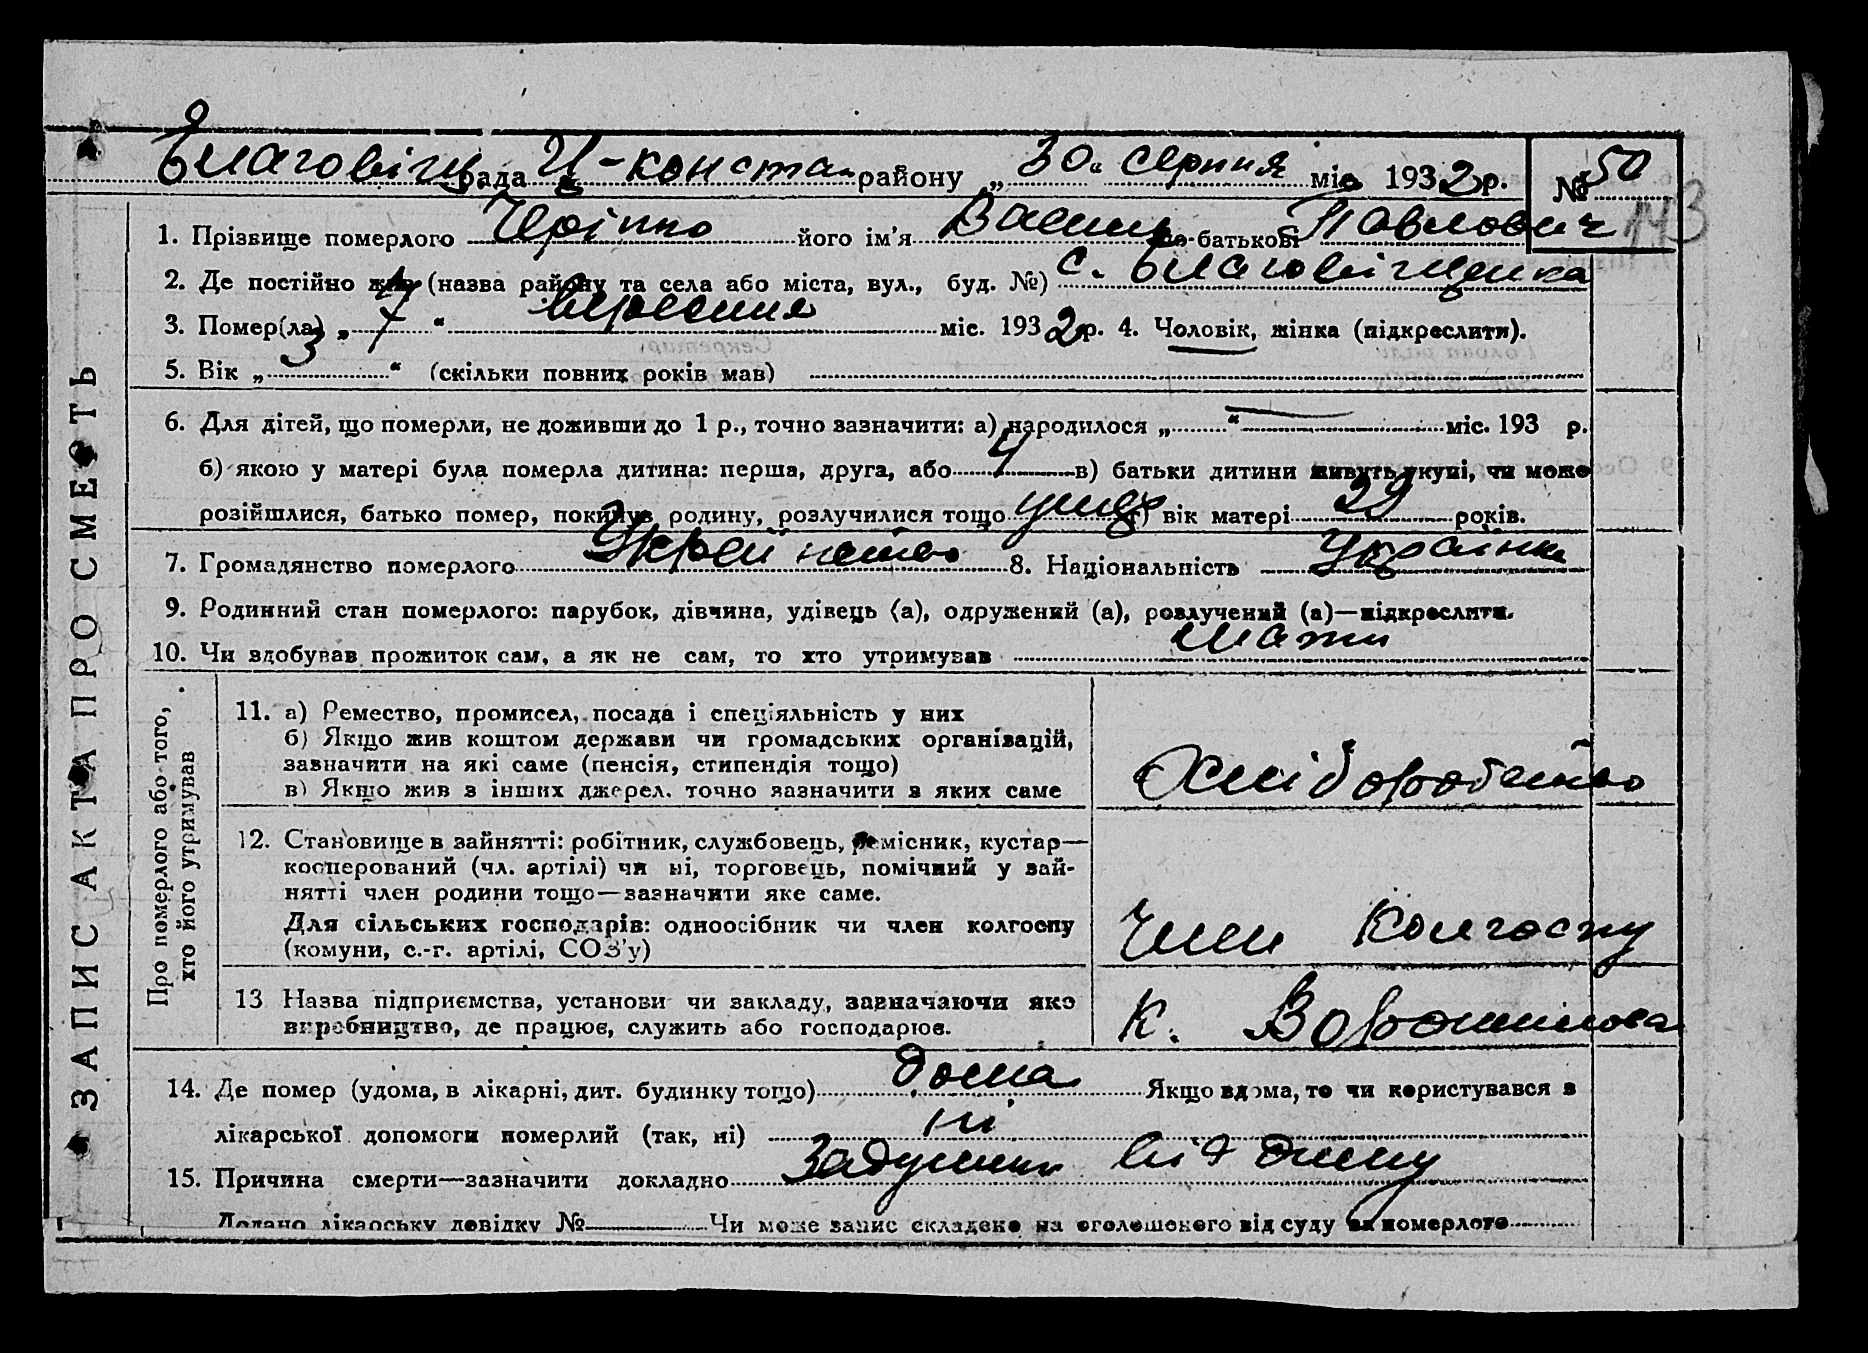 Благовіщ. рада Ц-конста. району „30“ серпня міс 1932 р. № 50
113
1. Прізвище померлого його ім'я Василь по-батькові Павлович
2. Де постійно жив (назва району та села або міста, вул., буд. №) с. Благовіщенка
3. Помер(ла) „7“ вересня міс. 1932 р. 4. Чоловік, жінка (підкреслити).
5. Вік „3“ (скільки повних років мав)
6. Для дітей, що померли, не доживши до 1 р., точно зазначити: а) народилося „ “ міс. 193 р.
б) якою у матері була померла дитина: перша, друга, або 4 в) батьки дитини живуть укупі, чи може
розійшлися, батько помер, покинув родину, розлучилися тощо г) вік матері 29 років.
7. Громадянство померлого 8. Національність Українка
9. Родинний стан померлого: парубок, дівчина, удівець (а), одружений (а), розлучений (а)—підкреслити.
10. Чи здобував прожиток сам, а як не сам, то хто утримував мати
ЗАПИС АКТА ПРО СМЕРТЬ
Про померлого або того,
хто його утримував
11. а) Ремество, промисел, посада і спеціяльність у них
б) Якщо жив коштом держави чи громадських організацій,
зазначити на які саме (пенсія, стипендія тощо)
в) Якщо жив з інших джерел, точно зазначити з яких саме
Хліборобство
12. Становище в зайнятті: робітник, службовець, ремісник, кустар—
кооперований (чл. артілі) чи ні, торговець, помічний у зай-
нятті член родини тощо—зазначити яке саме.
Для сільських господарів: одноосібник чи член колгоспу
(комуни, с.-г. артілі, СОЗ'у)
Член Колгоспу
13 Назва підприємства, установи чи закладу, зазначаючи яке
виробництво, де працює, служить або господарює.
К. Ворошилова
14. Де помер (удома, в лікарні, дит. будинку тощо) дома Якщо вдома, то чи користувався з
лікарської допомоги померлий (так, ні) ні
15. Причина смерти—зазначити докладно від диму
Додано лікарську довідку № Чи може запис складено на оголошеного від суду за померлого